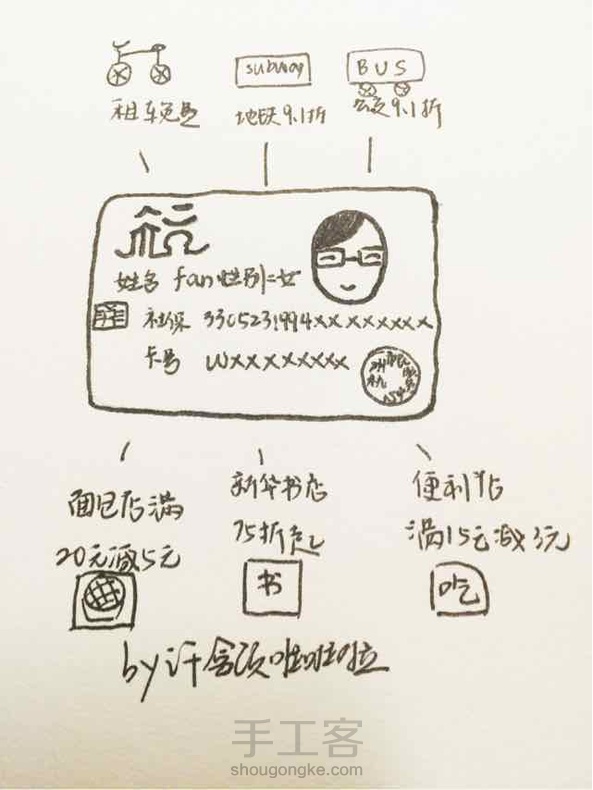 subway
BUS
租车免费
地铁9.1折
公交9.1折
姓名 fan 性别:女
社保 3305231994xxxxxxxx
卡号 Wxxxxxxxx
面包店满
20元减5元
新华书店
75折起
便利店
满15元减3元
书
吃
by
手工客
shougongke.com